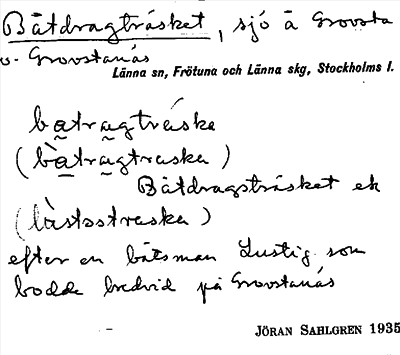 Båtdragträsket, sjö å Grovsta
o. Grovstanäs
Länna sn, Frötuna och Länna skg, Stockholms l.
ba̰tra̰gträskə
(bà̰tra̰gtraskə)
Båtdragsträsket ek
(làstsstraskə)
efter en båtsman Lustig som
bodde bredvid på Grovstanäs
JÖRAN SAHLGREN 1935